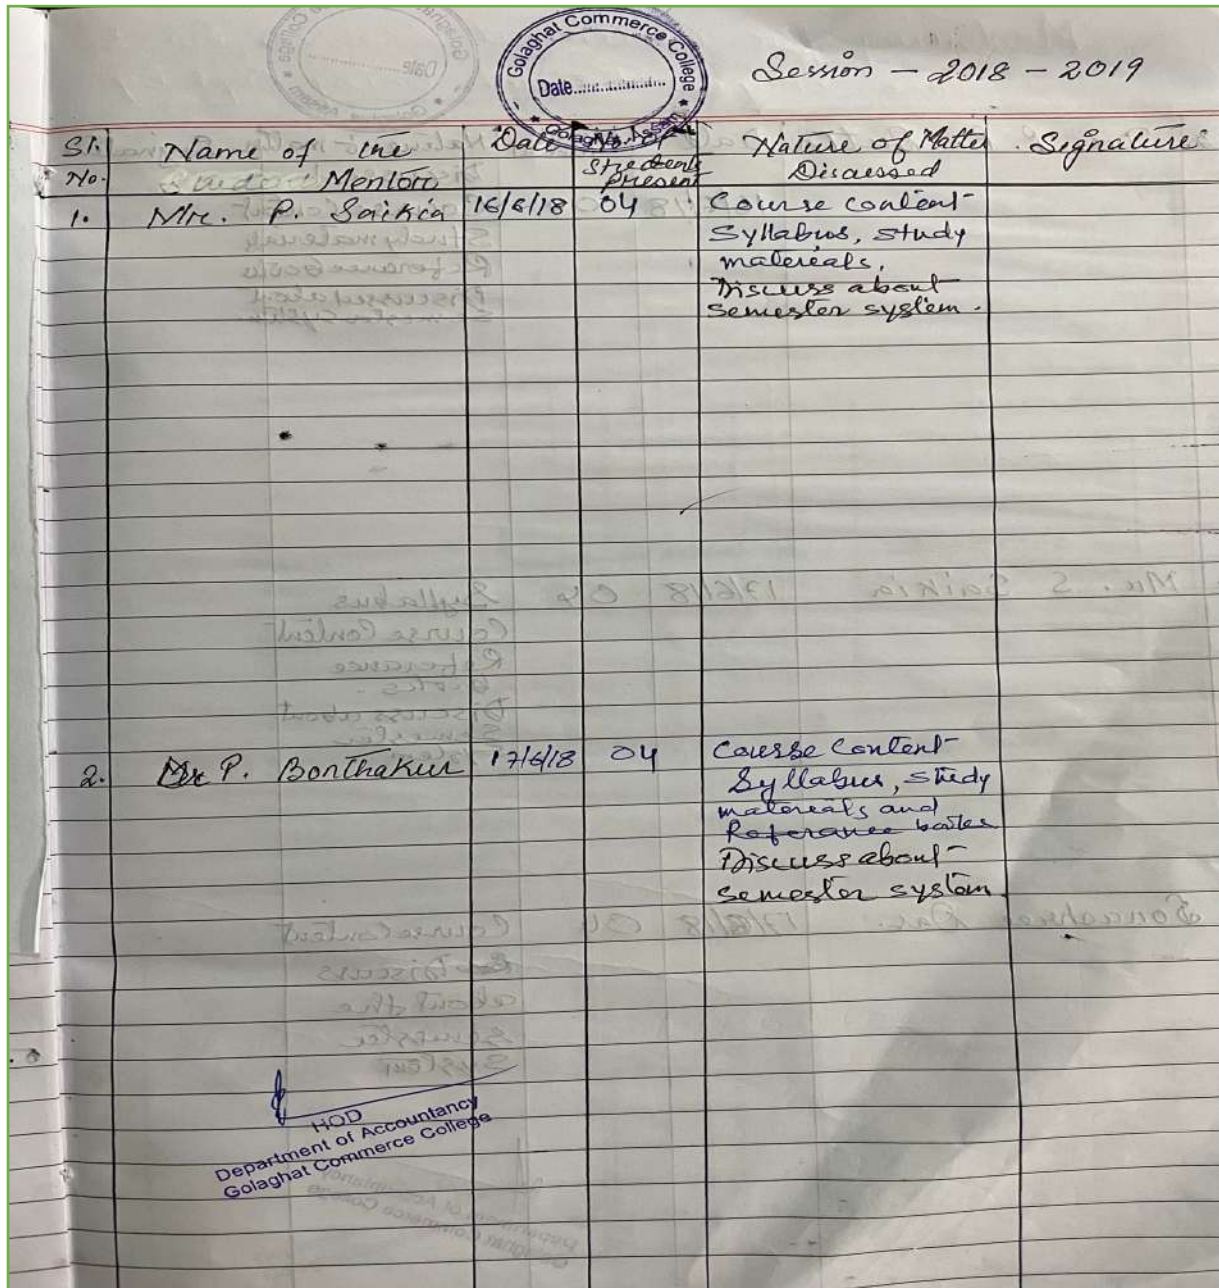 Golaghat Commerce College
Date..................
Golaghat, Assam
Session - 2018 - 2019
Sl. Name of the Date No. of Nature of Matter Signature
No. Mentor Students Discussed
present
1. Mr. P. Saikia 16/6/18 04 Course content
Syllabus, study
materials,
Discuss about
semester system.
2. Mr P. Borthakur 17/6/18 04 Course Content
Syllabus, study
materials and
Referance
Discuss about
semester system
HOD
Department of Accountancy
Golaghat Commerce College